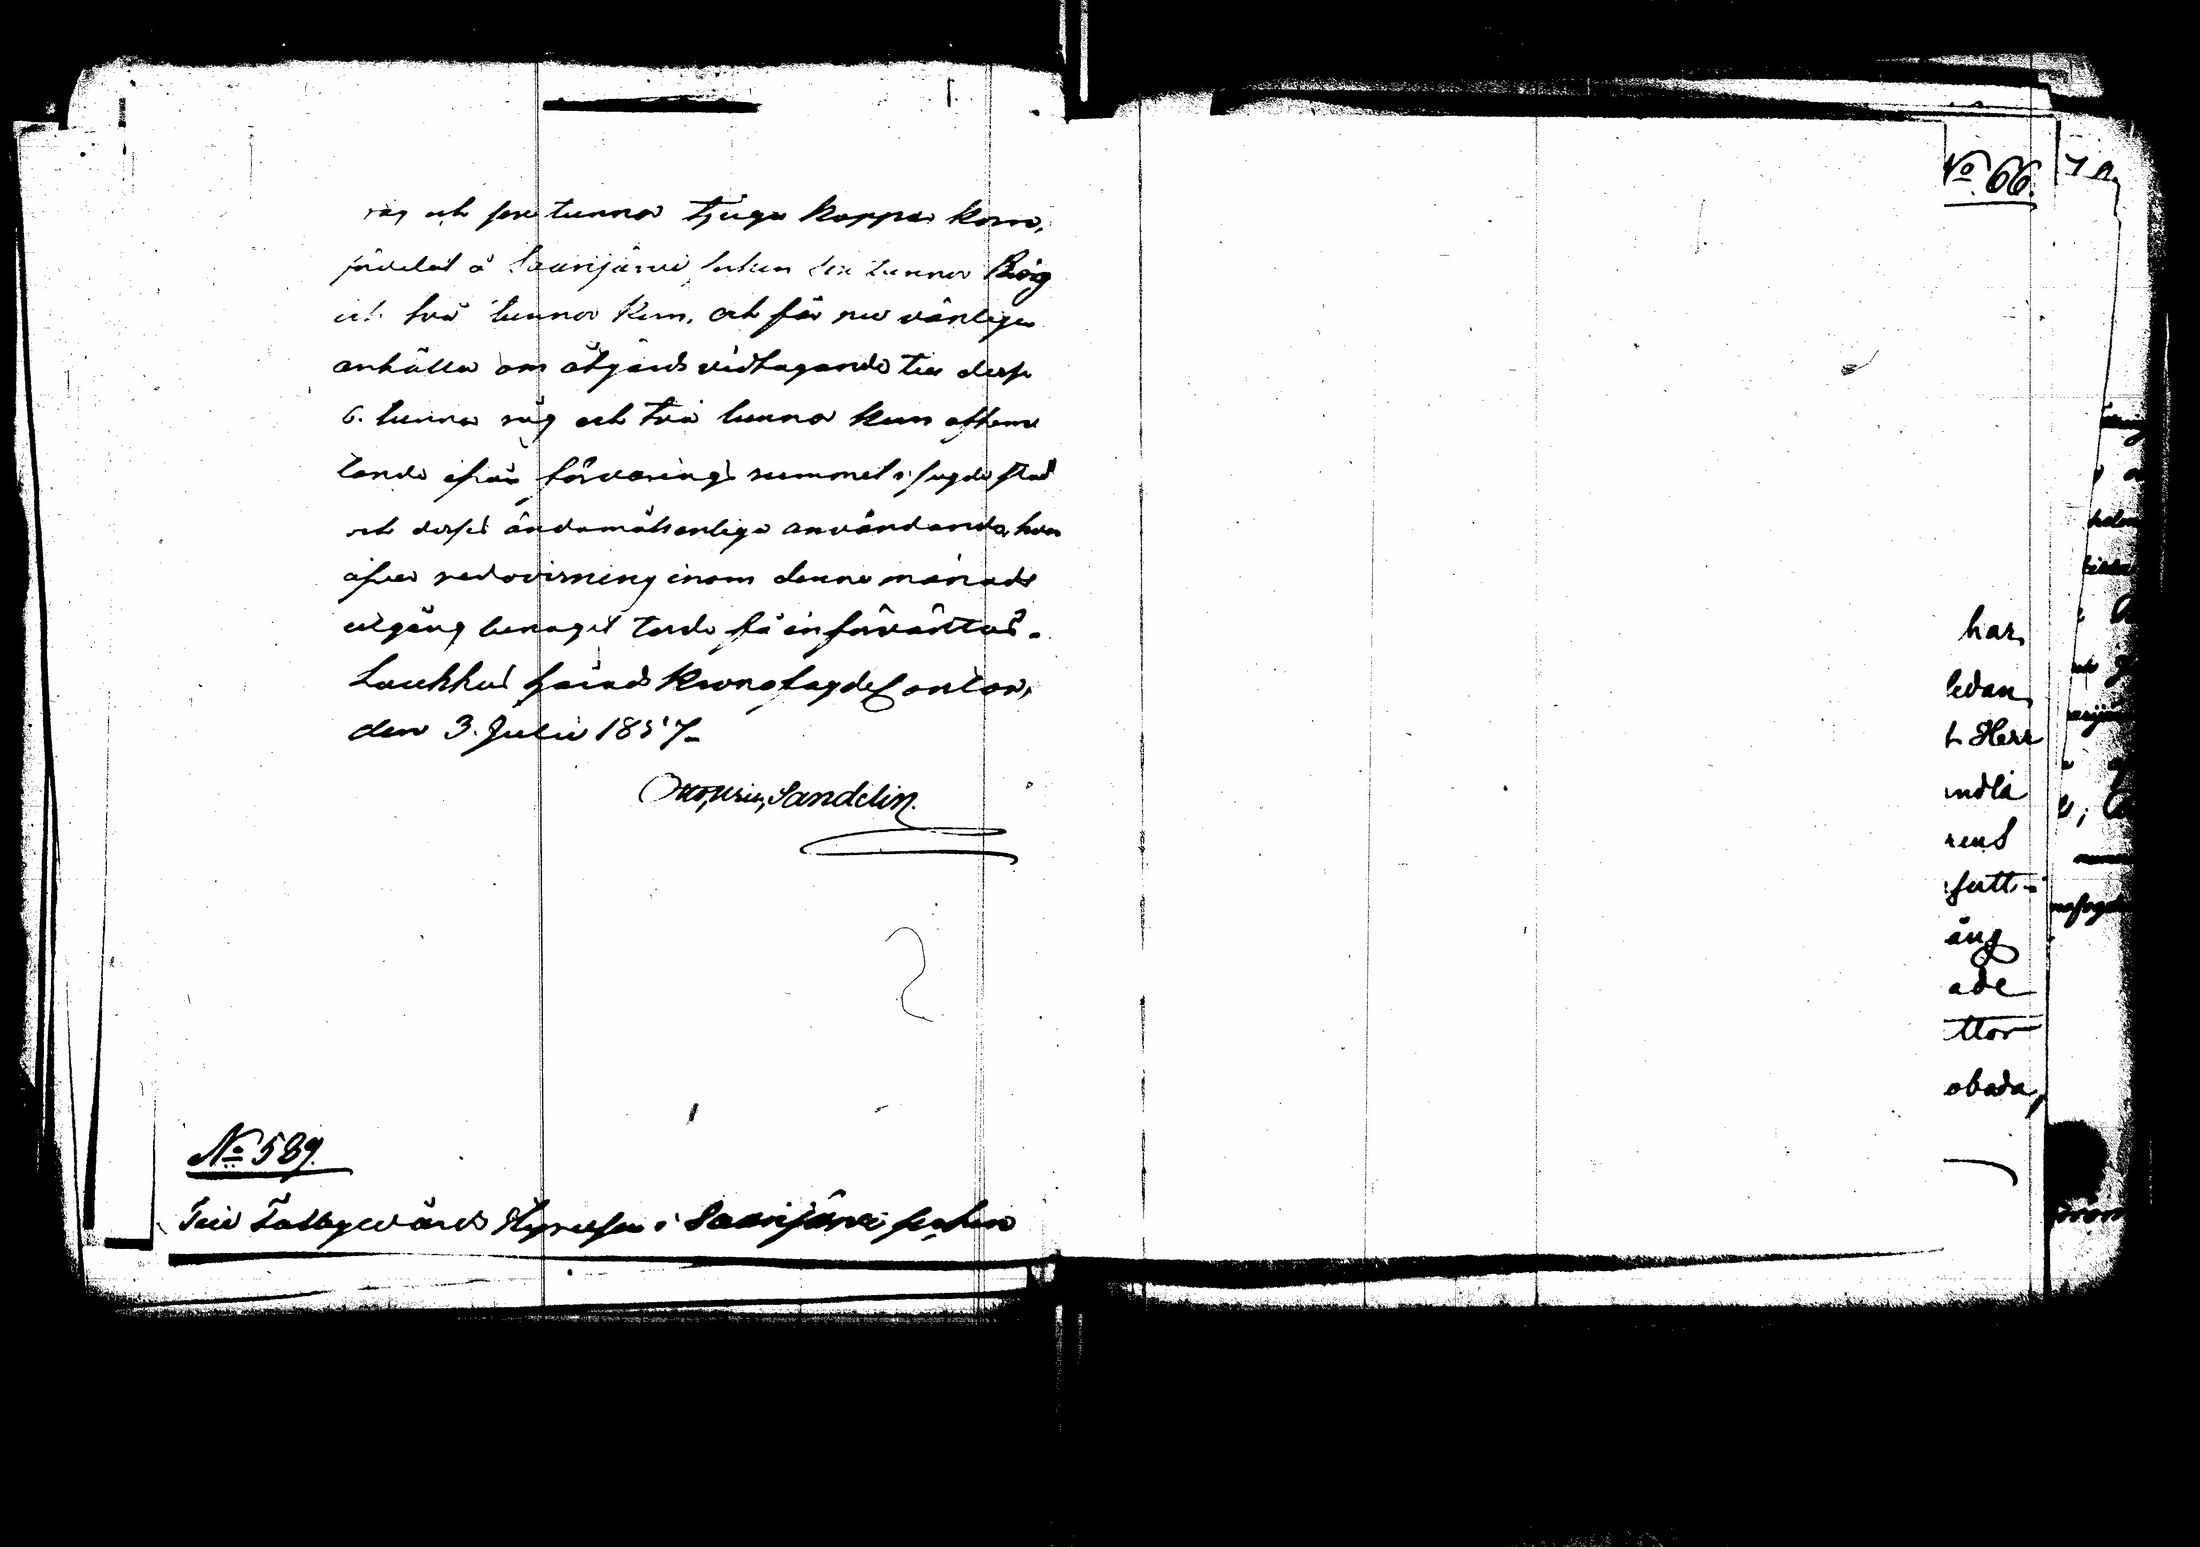 råg och fem tunnor tjugu kappar korn,
fördelat å Saarijärvi socken sex tunnor Råg
och två tunnor korn, och får nu vänligen
anhålla om åtgärds vidtagande till desse
6. tunnor råg och två tunnor korn afhem
tande ifrån förvarings rummet i sagde stad
och desses ändamålsenliga användande, hvar
öfver redovisning inom denne månads
utgång benäget torde få införväntas.
Laukkas härads Kronofogde Contor,
den 3. Julii 1857.
Sandelin.
No 589.
Till Fattigvårds Styrelsen i Saarijärvi socken
No 66.
har,
ledan
t Herr
ndla
rens
sutt-
äng
ade
ttor
obada,